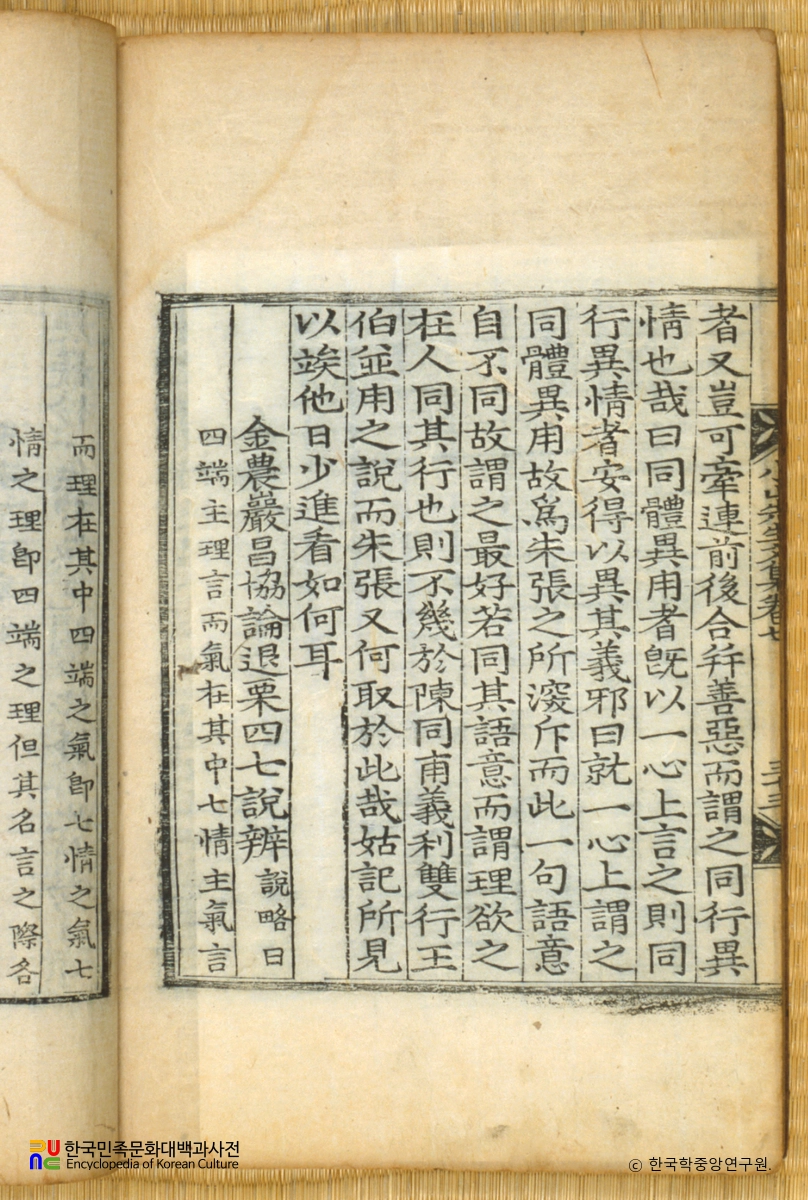 小山先生文集卷七
三十三
者又豈可牽連前後合幷善惡而謂之同行異
情也哉曰同體異用者旣以一心上言之則同
行異情者安得以異其義邪曰就一心上謂之
同體異用故爲朱張之所深斥而此一句語意
自不同故謂之最好若同其語意而謂理欲之
在人同其行也則不幾於陳同甫義利雙行王
伯並用之說而朱張又何取於此哉姑記所見
以竢他日少進看如何耳
金農巖昌協論退栗四七說辨 說略曰
四端主理言而氣在其中七情主氣言
而理在其中四端之氣卽七情之氣七
情之理卽四端之理但其名言之際各
한국민족문화대백과사전
Encyclopedia of Korean Culture
© 한국학중앙연구원.